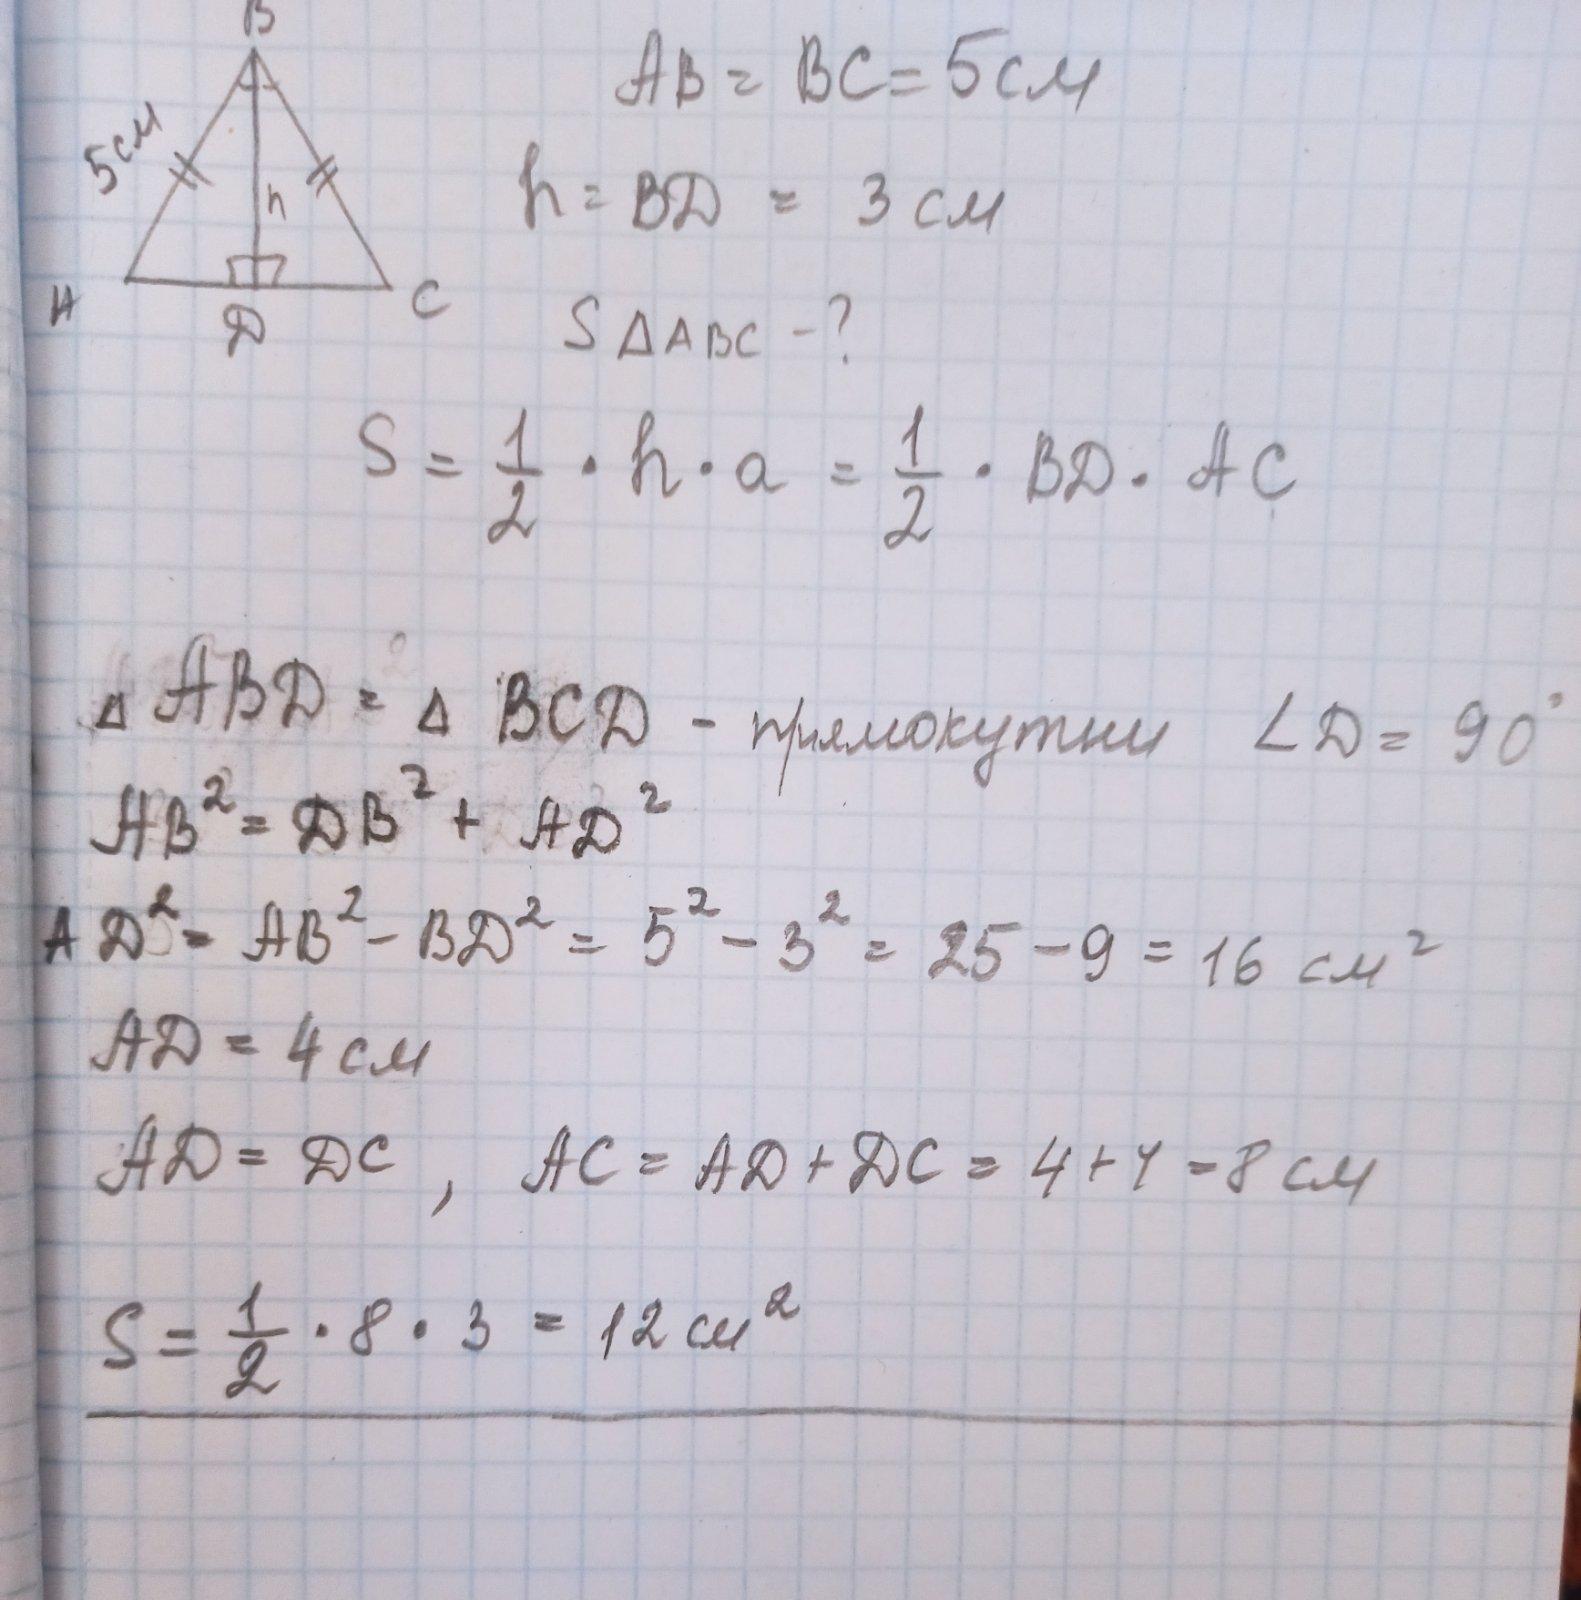 B
AB = BC = 5см
5см
h
h = BD = 3 см
A
D
C
S △ABC - ?
S = 1/2 · h · a = 1/2 · BD · AC
△ ABD = △ BCD - прямокутни ∠D = 90°
AB² = DB² + AD²
AD² = AB² - BD² = 5² - 3² = 25 - 9 = 16 см²
AD = 4 см
AD = DC , AC = AD + DC = 4 + 4 = 8 см
S = 1/2 · 8 · 3 = 12 см²